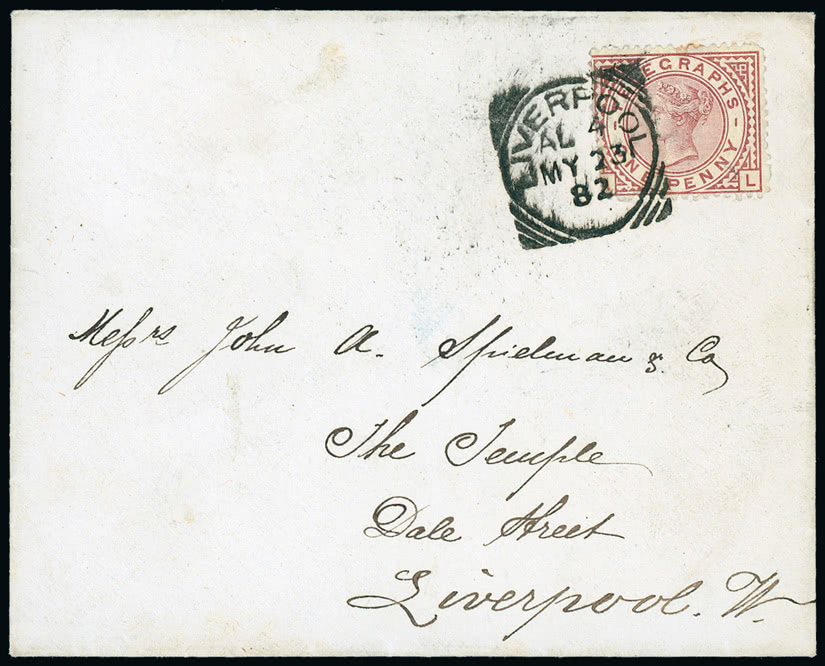 TELEGRAPHS
ONE PENNY
L
LIVERPOOL
AL 4
MY 23
82
Messrs John A. Spielman & Co
The Temple
Dale Street
Liverpool. W.